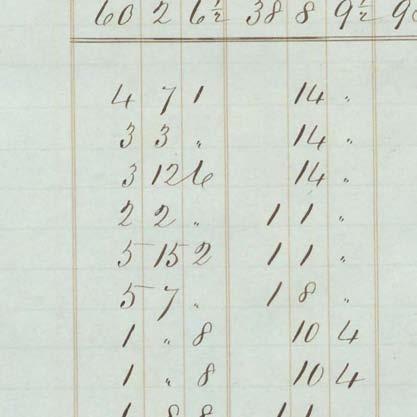 60 2 6½ 38 8 9½ 9
4 7 1 14 "
3 3 " 14 "
3 12 6 14 "
2 2 " 1 1 "
5 15 2 1 1 "
5 7 " 1 8 "
1 " 8 10 4
1 " 8 10 4
1 8 8 1 1